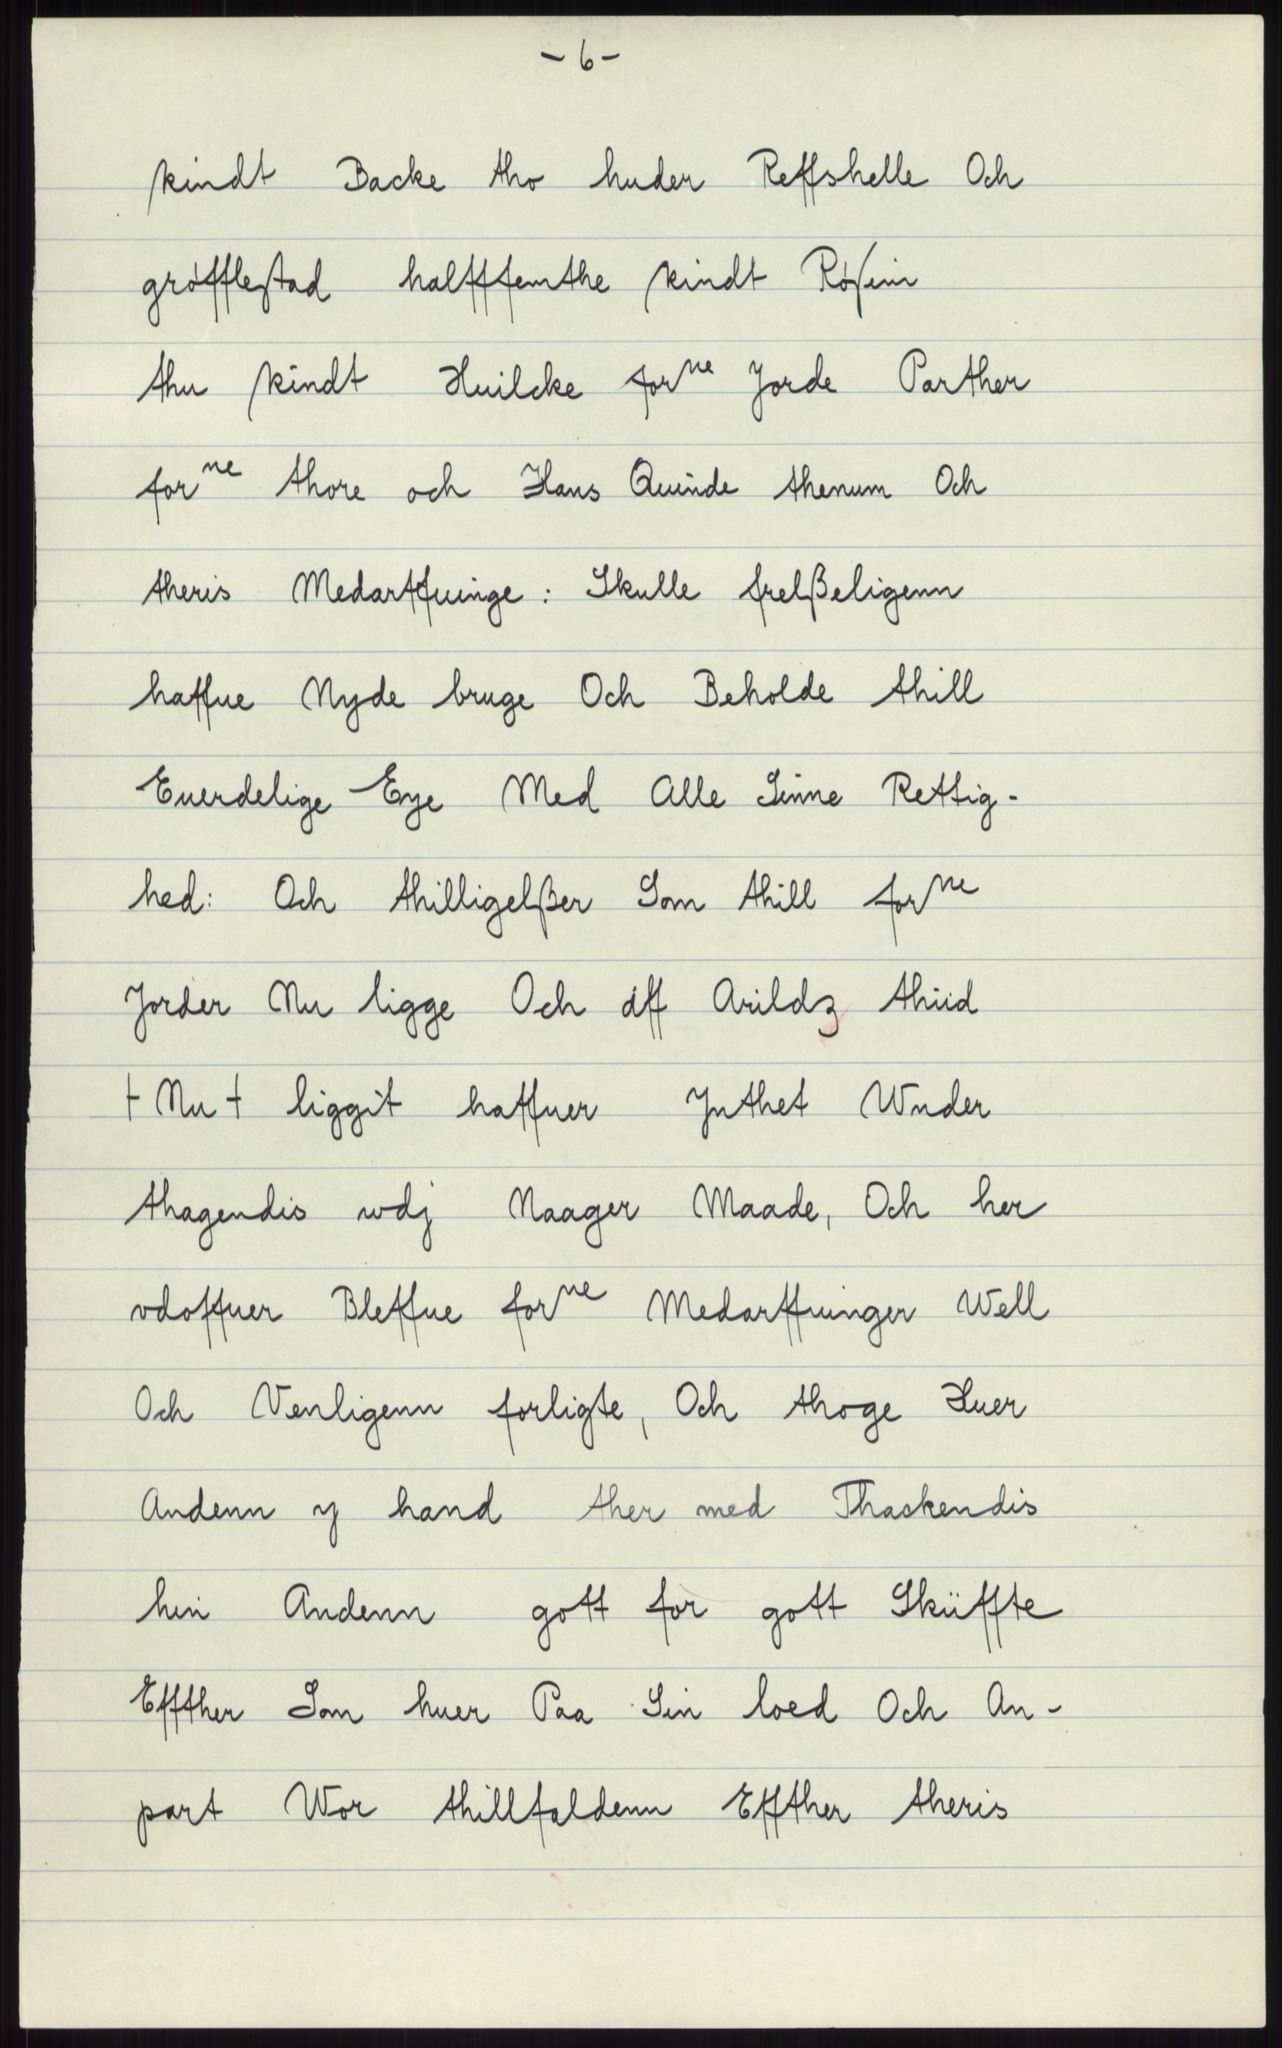 - 6 -
skindt Backe tho huder Reffshelle Och
grøfflestad halfffemthe skindt Røſein
thu skindt Huilcke forne Jorde Parther
forne thore och Hans Quinde thenum Och
theris Medarffuinge: Skulle frelßeligenn
haffue Nyde bruge Och Beholde thill
Euerdelige Eye Med Alle Sinne Rettig-
hed: Och thilligelßer Som thill forne
Jorder Nu ligge Och áff Arildz thiid
† Nu † liggit haffuer Jnthet Wnder
thagendis wdj Naager Maade, Och her
vdoffuer Bleffue forne Medarffuinger Well
Och Venligenn forligte, Och thoge Huer
Andenn y hand ther med Thaskendis
hin Andenn gott for gott Skiiffte
Effther Som huer Paa Sin loed Och An-
part Wor thillfaldenn Effther theris